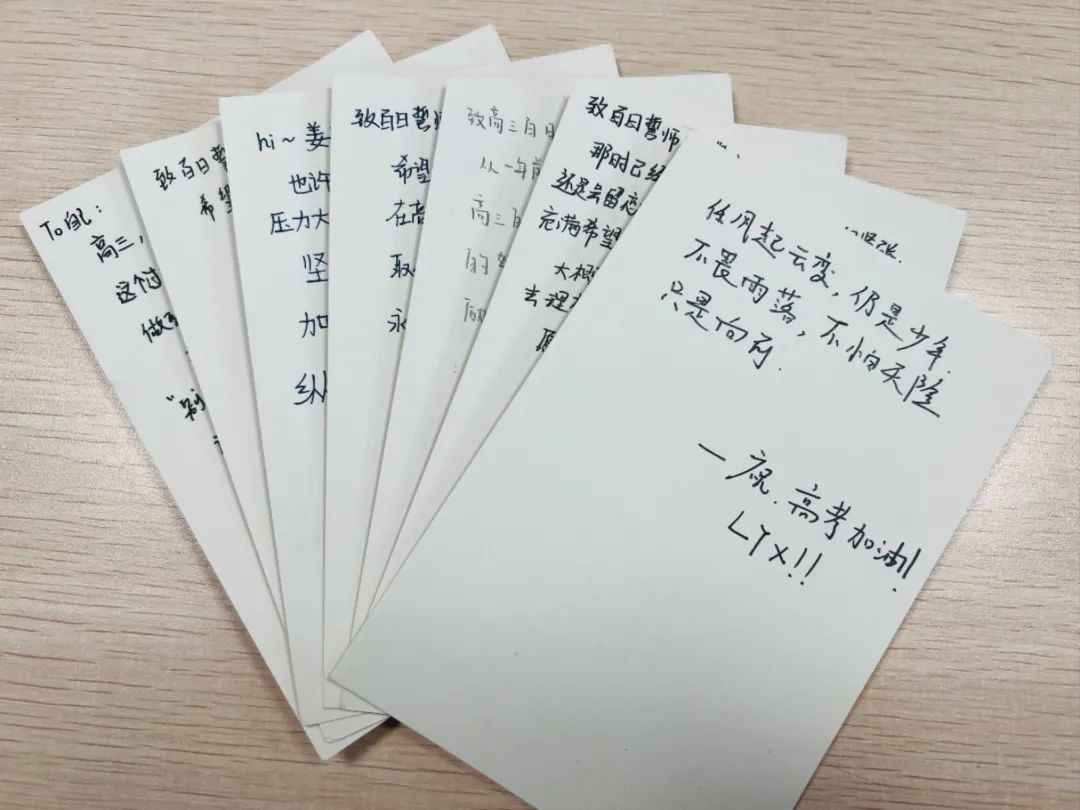 To自己：
高三，
做
致百日誓
希望
hi～姜
也许
压力大
坚
加
纵
致百日誓师
希望
在高
取
永
致高三百日
从一年前
高三百
的
愿
致百日誓师
那时已经
还是去留恋
充满希望
大概
去理
任风起云变，仍是少年.
不畏雨落，不怕天险
只是向前.
一祝.高考加油!
LYX!!